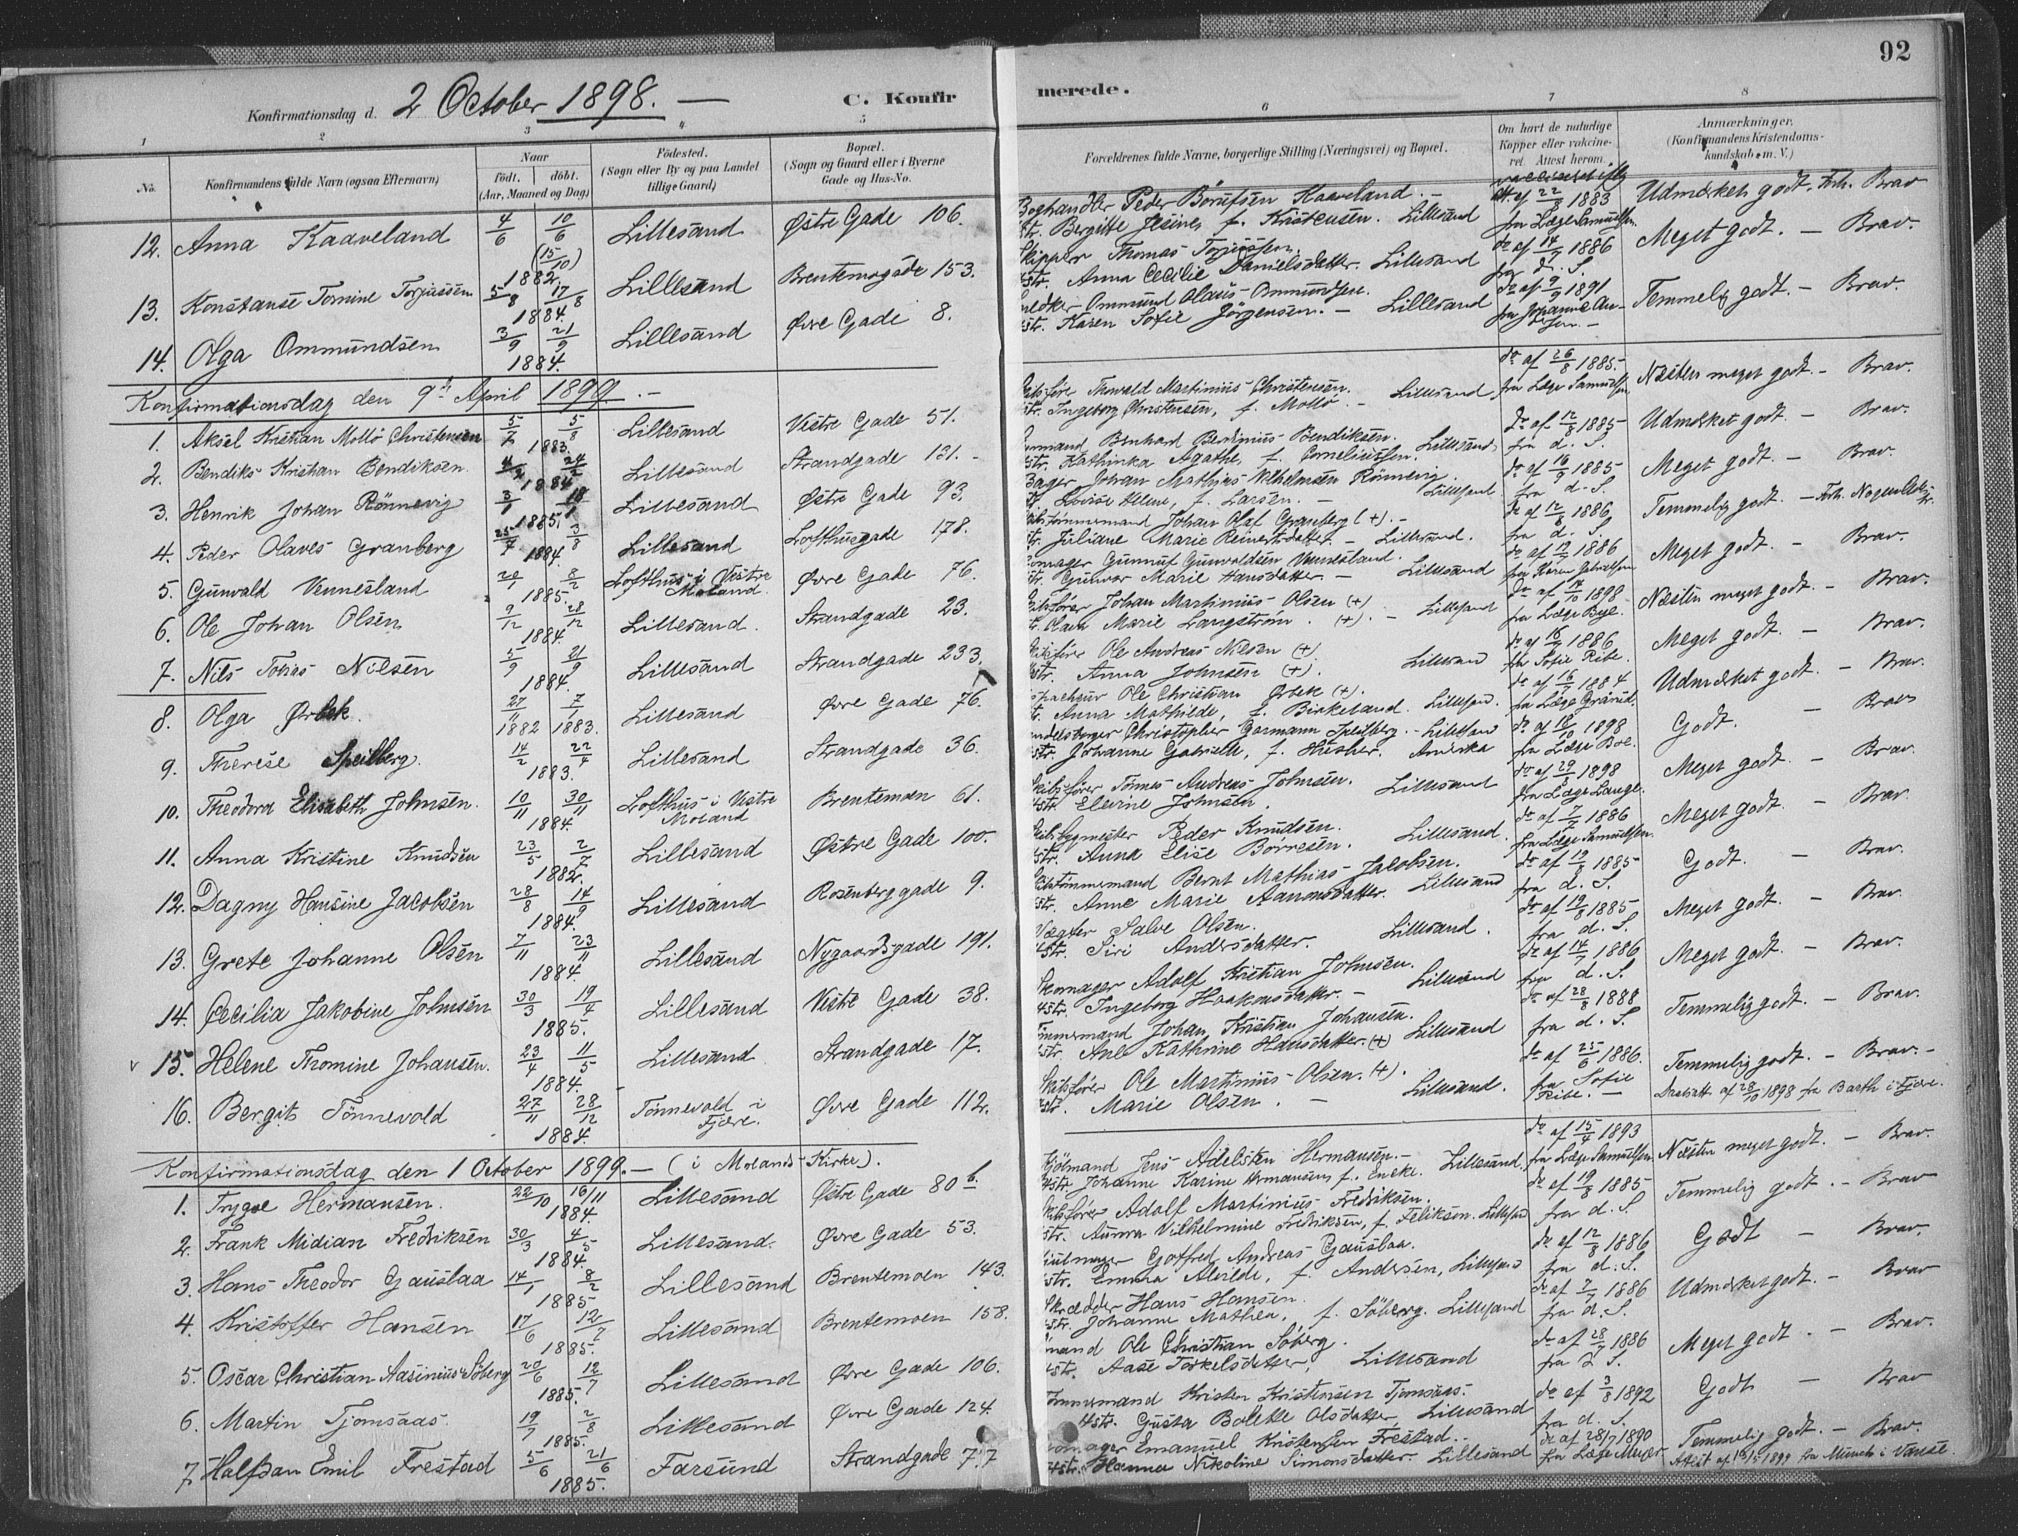 92
Konfirmationsdag d. 2 October 1898. —
C. Konfir
merede.
1 2 3 4 5 6 7 8
No.
Konfirmandens fulde Navn (ogsaa Efternavn)
Naar
født. døbt.
(Aar, Maaned og Dag)
Fødested.
(Sogn eller By og paa Landet
tillige Gaard)
Bopæl.
(Sogn og Gaard eller i Byerne
Gade og Hus-No.
Forældrenes fulde Navne, borgerlige Stilling (Næringsvei) og Bopæl.
Om havt de naturlige
Kopper eller vaccine-
ret. Attest herom.
Anmærkninger.
(Konfirmandens Kristendoms-
kundskab o. m. V.)
12. Anna Kaaveland 4/6 10/6 (15/10) 1882 Lillesand Østre Gade 106.
Boghandler Peder Børufsen Kaaveland. —
Bergitte Jesine, f. Kristensen. Lillesand
af 22/8 1883 fra Læge Samuelsen
Udmærket godt. Forh. Brav
13. Konstanse Tomine Torjussen 5/8 17/8 1884. Lillesand Brentemogade 153.
Skipper Thomas Torjussen
Anna Cecilie Danielsdatter. Lillesand
do af 14/7 1886 fra d. S.
Meget godt. — Brav.
14. Olga Ommundsen 3/9 21/9 1884. Lillesand Øvre Gade 8.
Snedker Ommund Olaus Ommundsen.
Karen Sofie Jørgensen. — Lillesand
do af 9/9 1891
Temmelig godt. — Brav.
Konfirmationsdag den 9de April 1899. —
1. Aksel Kristian Mollø Christensen 5/7 5/8 1883. Lillesand Vestre Gade 51.
Thorvald Martinius Christensen.
Ingeborg Christensen, f. Mollø — Lillesand
do af 26/8 1885. fra Læge Samuelsen
Næsten meget godt. — Brav.
2. Bendiks Kristian Bendiksen 24/2 1884 Lillesand Strandgade 131. -
Bernhard Berdinius Bendiksen.
Kathinka Agathe, f. Corneliussen. Lillesand.
do af 12/8 1885 fra d. S.
Udmærket godt. — Brav.
3. Henrik Johan Rønnevig 3/1 18/1 1885. Lillesand Østre Gade 93.
Bager Johan Mathias Vilhelmsen Rønnevig
Lovise Helene, f. Larsen. — Lillesand
do af 16/9 1885 fra d. S.
Meget godt. — Brav.
4. Peder Olaves Granberg 25/7 3/8 1884. Lillesand Lofthusgade 178.
Johan Olaf Granberg (+). —
Juliane Marie Reinertsdatter — Lillesand.
do af 12/8 1886 fra d. S.
Temmelig godt. — Forh.
5. Gunvald Vennesland 20/1 8/2 1885. Lofthus i Vestre Moland. Øvre Gade 76.
Gunnuf Gunvaldsen Vennesland.
Gunvor Marie Hansdatter. — Lillesand
do af 19/7 1886
Meget godt. — Brav.
6. Ole Johan Olsen 9/12 28/12 1884. Lillesand. Strandgade 23.
Skibsfører Johan Martinius Olsen (+)
Olava Marie Langstrøm. (+). — Lillesand
do af 14/10 1898 fra Læge Bye.
Næsten meget godt. — Brav.
7. Nils Tobias Nilsen 5/9 21/9 1884. Lillesand Strandgade 233.
Skibsfører Ole Andreas Nilsen (+)
Anna Johnsen (+). Lillesand
do af 16/7 1886 fra Sofie Ribe.
Meget godt — Brav.
8. Olga Ørbek. 27/11 1882 7/1 1883. Lillesand Øvre Gade 76.
Ole Christian Ørbek (+).
Anna Mathilde, f. Birkeland. Lillesand.
do af 16/7 1884
Udmærket godt. — Brav.
9. Therese Speilberg. 14/2 22/4 1883. Lillesand Strandgade 36.
Handelsborger Christopher Garmann Speilberg. — Lillesand
Johanne Gabrielle, f. Amerika
do af 18/10 1898 fra Læge Boe.
Godt. — Brav
10. Theodora Elisabeth Johnsen. 10/11 30/11 1884. Lofthus i Vestre Moland Brentemoen 61.
Skibsfører Tomas Andreas Johnsen.
Elevine Johnsen. Lillesand
do af 29/8 1898 fra Læge Lange.
Meget godt. — Brav.
11. Anna Kristine Knudsen 23/5 2/7 1882. Lillesand Østre Gade 100.
Peder Knudsen.
Anna Elise Børresen. Lillesand.
do af 7/7 1886 fra Læge Samuelsen.
Meget godt. — Brav.
12. Dagny Hansine Jacobsen 28/8 14/9 1884. Lillesand Rosenberggade 9.
Skibstømmermand Bernt Mathias Jacobsen.
Anne Marie Aanonsdatter. Lillesand
do af 19/8 1885 fra d. S.
Godt. — Brav.
13. Grete Johanne Olsen 7/11 23/11 1884. Lillesand Nygaardsgade 191.
Vægter Salve Olsen.
Siri Andersdatter. Lillesand.
do af 19/8 1885 fra d. S.
Meget godt. — Brav.
14. Cecilia Jakobine Johnsen 30/3 19/4 1885. Lillesand Vestre Gade 38.
Skomager Adolf Kristian Johnsen.
Ingeborg Haakonsdatter. — Lillesand
do af 14/7 1886 fra d. S.
Meget godt. — Brav.
15. Helene Thomine Johansen. 23/4 11/5 1884. Lillesand. Strandgade 17.
Tømmermand Johan Kristian Johansen.
Ane Kathrine Hansdatter. (+) Lillesand
do af 28/8 1888 fra d. S.
Temmelig godt. — Brav.
16. Bergit Tønnevold 27/11 28/12 1884. Tønnevold i Fjære. Øvre Gade 112.
Skibsfører Ole Martinius Olsen. (+).
Marie Olsen. — Lillesand.
do af 25/6 1886. fra Sofie Ribe. —
Temmelig godt. — Brav. —
af 28/10 1898 fra Barth i Fjære.
Konfirmationsdag den 1 October 1899. — (i Molands Kirke).
1. Trygve Hermansen. 22/10 16/11 1884. Lillesand Østre Gade 80 b.
Jens Adelsten Hermansen. —
Johanne Karine Hermansen, f. Eneke. Lillesand.
do af 15/4 1893 fra Læge Samuelsen.
Næsten meget godt. — Brav.
2. Frank Midian Fredriksen 30/3 4/5 1884. Lillesand. Øvre Gade 53.
Skibsfører Adolf Martinius Fredriksen.
Vilhelmine Fredriksen, f. Feliksen. Lillesand
do af 19/8 1885 fra d. S.
Temmelig godt. — Brav
3. Hans Theodor Gauslaa 14/1 8/2 1885 Lillesand Brentemoen 143.
Gotfred Andreas Gauslaa.
Emma Alvilde, f. Andersen, Lillesand
do af 12/8 1886 fra d. S.
Godt — Brav.
4. Kristoffer Hansen 17/6 12/7 1885. Lillesand Brentemoen 158.
Skrædder Hans Hansen.
Johanne Mathea, f. Søberg. Lillesand
do af 7/7 1886 fra d. S.
Udmærket godt. — Brav
5. Oscar Christian Aasinius Søberg 20/6 12/7 1885. Lillesand Øvre Gade 106.
Ole Christian Søberg.
Aase Torkelsdatter, Lillesand
do af 28/7 1886 fra d. S.
Meget godt. — Brav.
6. Martin Tjomsaas. 19/7 2/8 1885. Lillesand Øvre Gade 124.
Tømmermand Kristen Kristensen Tjomsaas.
Gusta Bolette Olsdatter, Lillesand
do af 3/8 1892 fra d. S.
Godt — Brav
7. Halfdan Emil Frestad 5/6 21/6 1885. Farsund Strandgade 77
Emanuel Kristensen Frestad..
Hanna Nikoline Simonsdatter. Lillesand
do af 28/7 1890 fra Læge Meyer
Temmelig godt. — Brav.
Attest af 1899 fra Munch i Vanse.